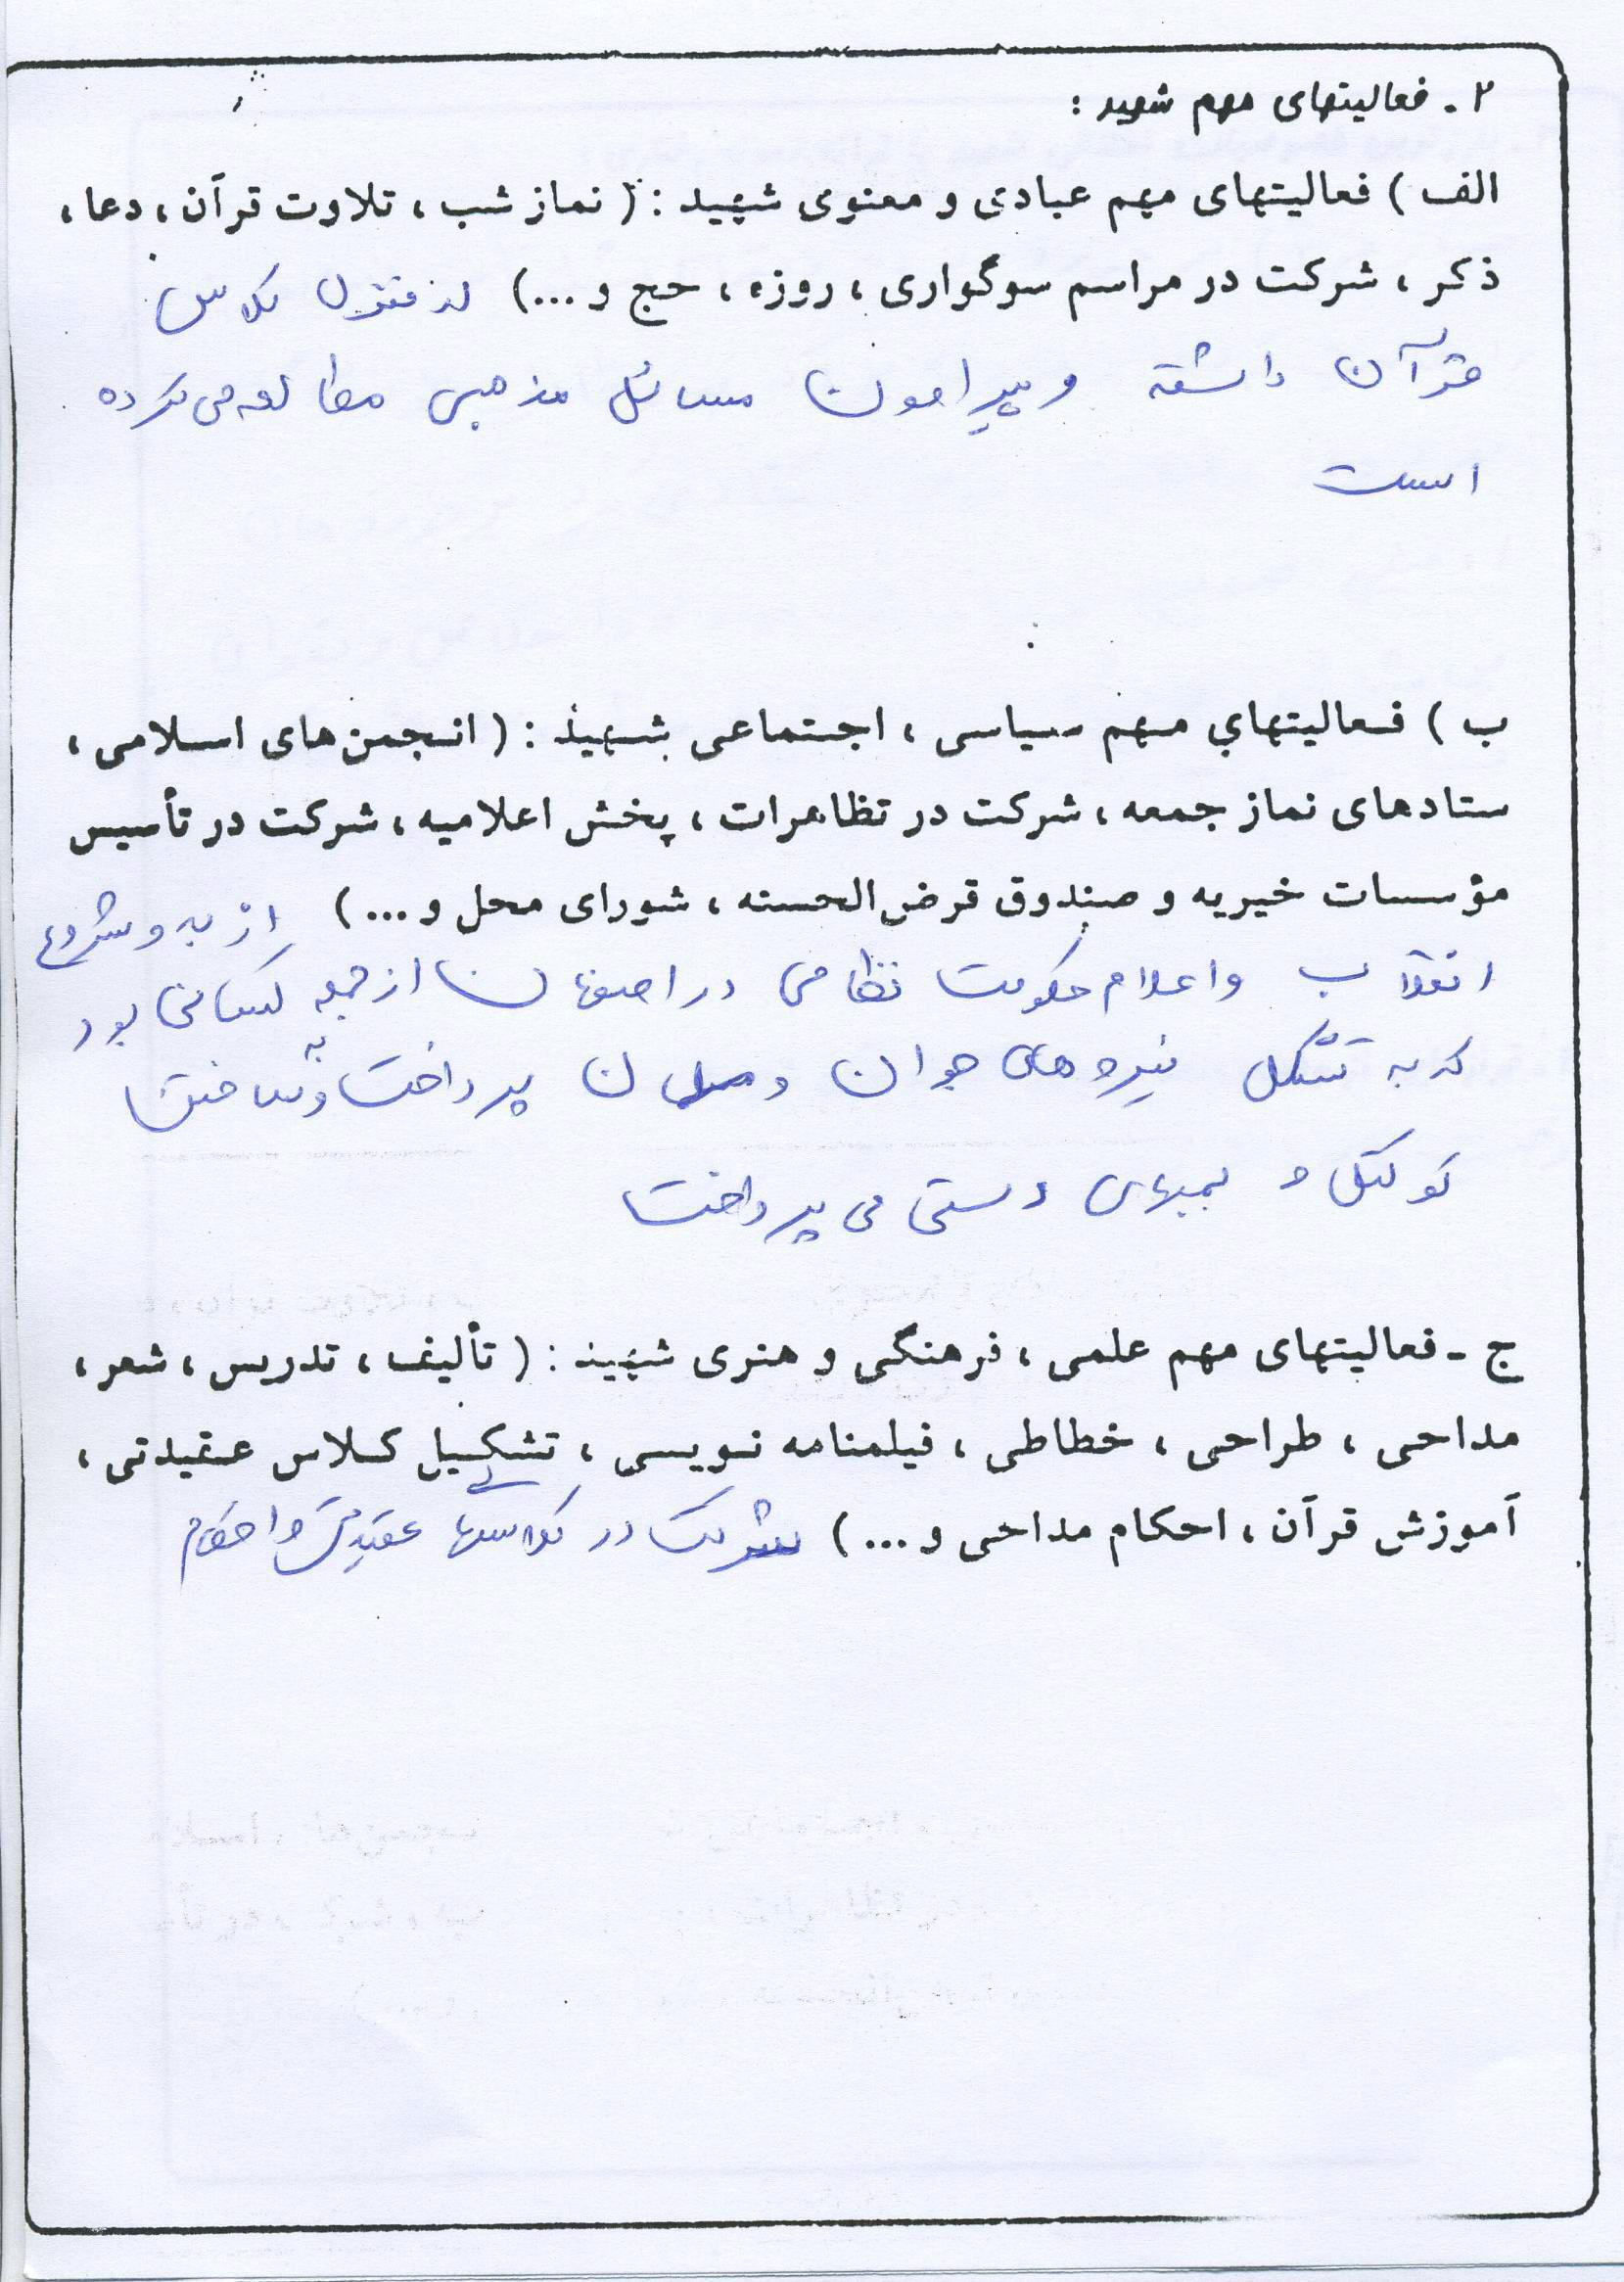 ۲ - فعالیتهای مهم شهید :
الف ) فعالیتهای مهم عبادی و معنوی شهید : ( نماز شب ، تلاوت قرآن ، دعا ،
ذکر ، شرکت در مراسم سوگواری ، روزه ، حج و ... ) در منزل کلاس
قرآن داشته و پیرامون مسائل مذهبی مطالعه می کرده
است
ب ) فعالیتهای مهم سیاسی ، اجتماعی شهید : ( انجمن های اسلامی ،
ستادهای نماز جمعه ، شرکت در تظاهرات ، پخش اعلامیه ، شرکت در تأسیس
مؤسسات خیریه و صندوق قرض الحسنه ، شورای محل و ... ) از بدو شروع
انقلاب و اعلام حکومت نظامی در اصفهان از جمله کسانی بود
که به تشکل نیروهای جوان و مسلمان پرداخت و به ساختن
کوکتل و بمبهای دستی می پرداخت
ج - فعالیتهای مهم علمی ، فرهنگی و هنری شهید : ( تألیف ، تدریس ، شعر ،
مداحی ، طراحی ، خطاطی ، فیلمنامه نویسی ، تشکیل کلاس عقیدتی ،
آموزش قرآن ، احکام مداحی و ... ) شرکت در کلاسهای عقیدتی و احکام